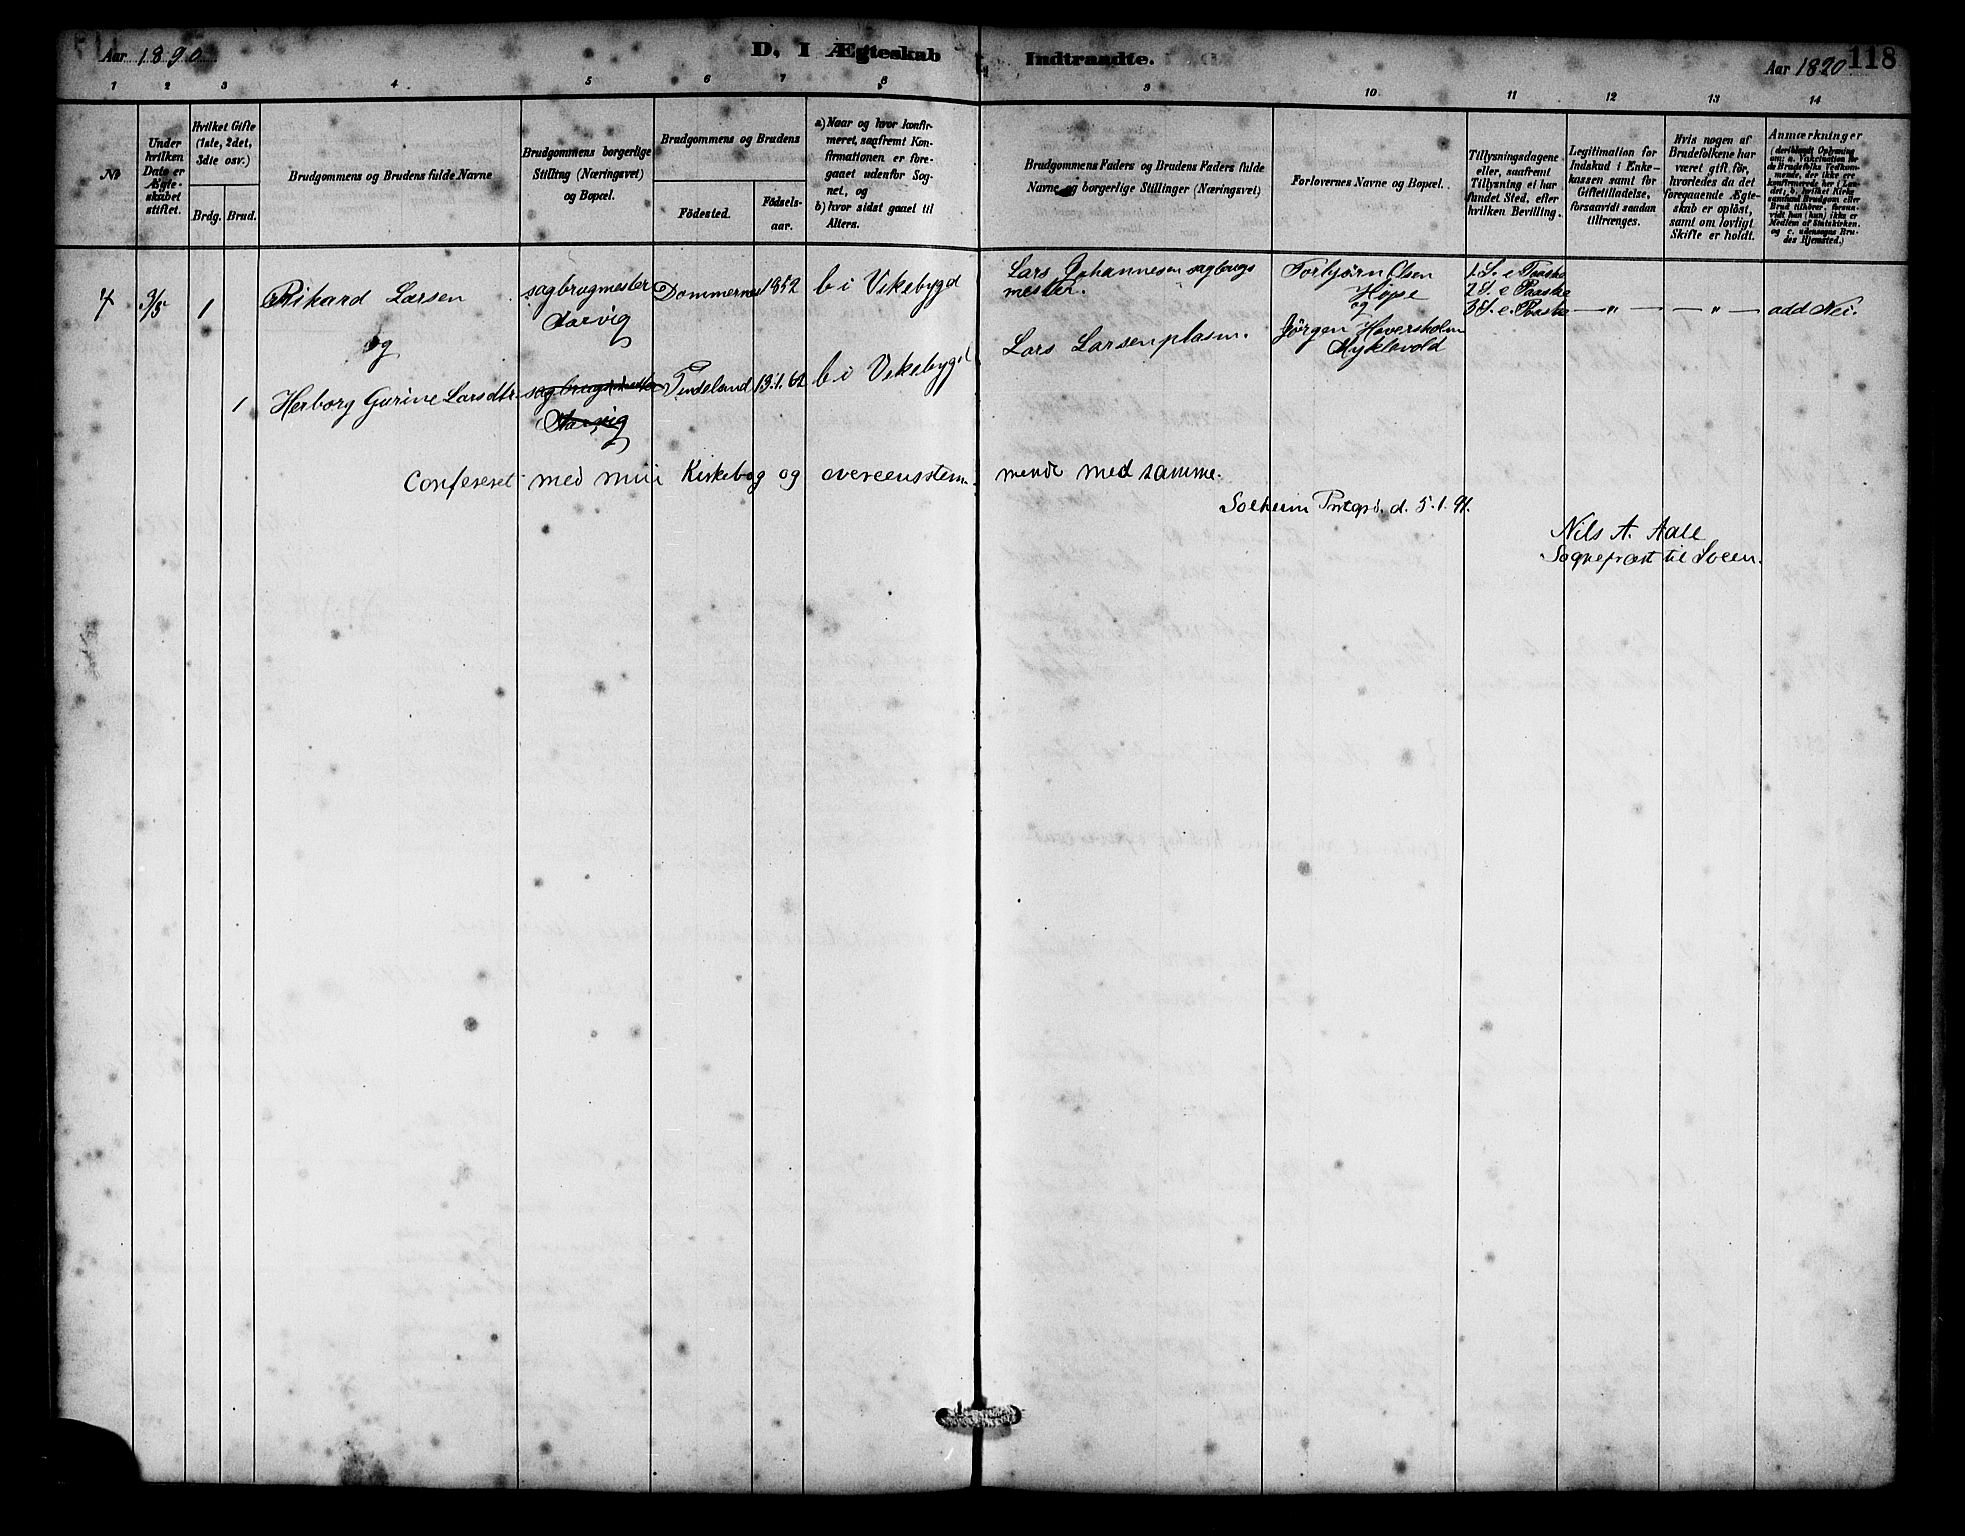 Aar 1890
D. I Ægteskab Indtraadte.
Aar 1890
118
1 2 3 4 5 6 7 8 9 10 11 12 13 14
№
Under hvilken Dato er Ægteskabet stiftet.
Hvilket Gifte (1ste, 2det, 3die osv.)
Brdg. Brud.
Brudgommens og Brudens fulde Navne
Brudgommens borgerlige Stilling (Næringsvei) og Bopæl.
Brudgommens og Brudens
Fødested.
Fødselsaar.
a) Naar og hvor konfirmeret, saafremt Konfirmationen er foregaaet udenfor Sognet, og
b) hvor sidst gaaet til Alters.
Brudgommens Faders og Brudens Faders fulde Navne og borgerlige Stillinger (Næringsvei)
Forlovernes Navne og Bopæl.
Tillysningsdagene eller, saafremt Tillysning ei har fundet Sted, efter hvilken Bevilling.
Legitimation for Indskud i Enkekassen samt for Giftetilladelse, forsaavidt saadan tiltrænges.
Hvis nogen af Brudefolkene har været gift før, hvorledes da det foregaaende Ægteskab er opløst, samt om lovligt Skifte er holdt.
Anmærkninger (deriblandt Oplysning om: a. Vakcination for de Brudefolks Vedkommende, der ikke ere konfirmerede her i Landet; b. hvilket Kirkesamfund Brudgom eller Brud tilhører, forsaavidt han (hun) ikke er Medlem af Statskirken, og c. udensogns Brudes Hjemsted.)
4 3/5 1
Rikard Larsen
og
sagbrugmester
Aarvig
Dommernes 1852
b i Vikebygd
Lars Johannesen sagbrugs
mester.
Torbjørn Olsen
Høpe
og
Jørgen Haversholm
Myklevold
1 S. e Paaske
2 S. e Paaske
3 S. e. Paaske
— " — — " — add Nei.
1 Herborg Gurine Larsdtr.
sagbrugsmester
Aarvig
Tindeland 13.1.62
b i Vikebygd
Lars Larsen plasm.
Confereret med min Kirkebog og overensstem-
mende med samme.
Solheim Præstgd. d. 5.1.91.
Nils A. Aale
Sognepræst til Sveen.